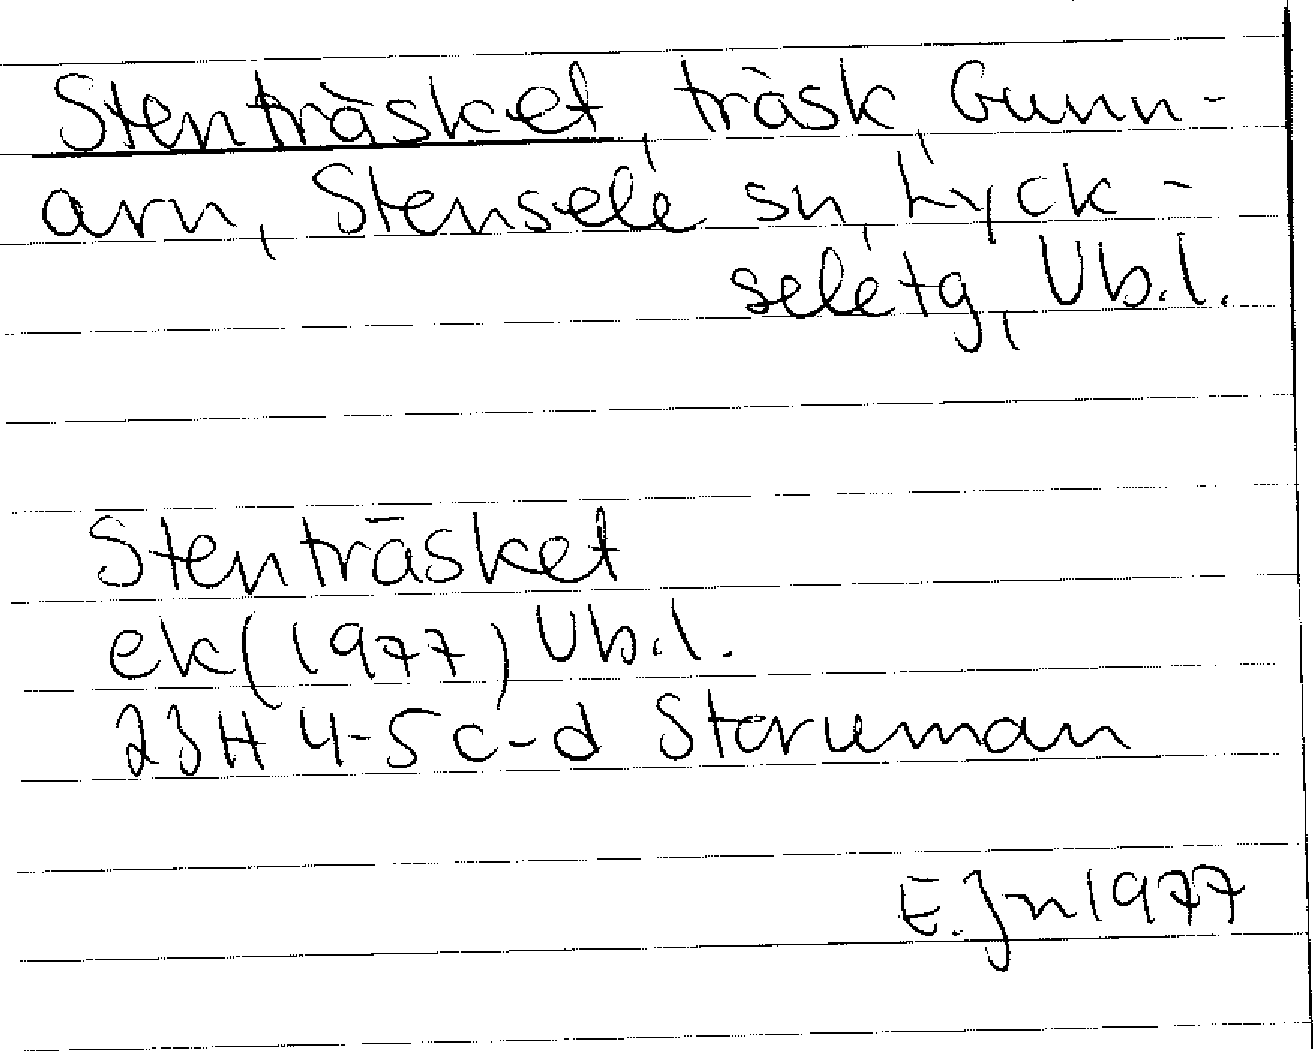 Stenträsket, träsk, Gunn-
arn, Stensele sn, Lyck-
sele tg, Vb.l.
Stenträsket
ek (1977) Vb.l.
23H 4-5 c-d Storuman
E.Jn 1977